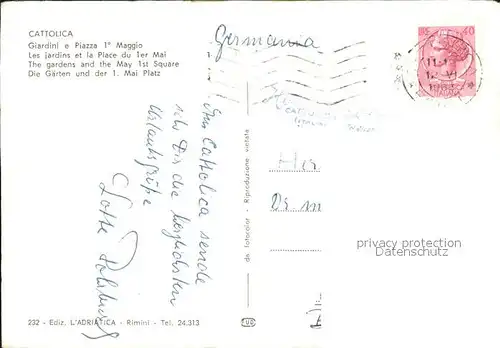 CATTOLICA
Giardini e Piazza 1° Maggio
Les jardins et la Place du 1er Mai
The gardens and the May 1st Square
Die Gärten und der 1. Mai Platz
Germania
40
Aus Cattolica sende
ich Dir die herzlichsten
Urlaubsgrüße
Lotte
da fotocolor - Riproduzione vietata
privacy protection
AnsichtskartenVersand.com
232 - Ediz. L'ADRIATICA - Rimini - Tel. 24.313